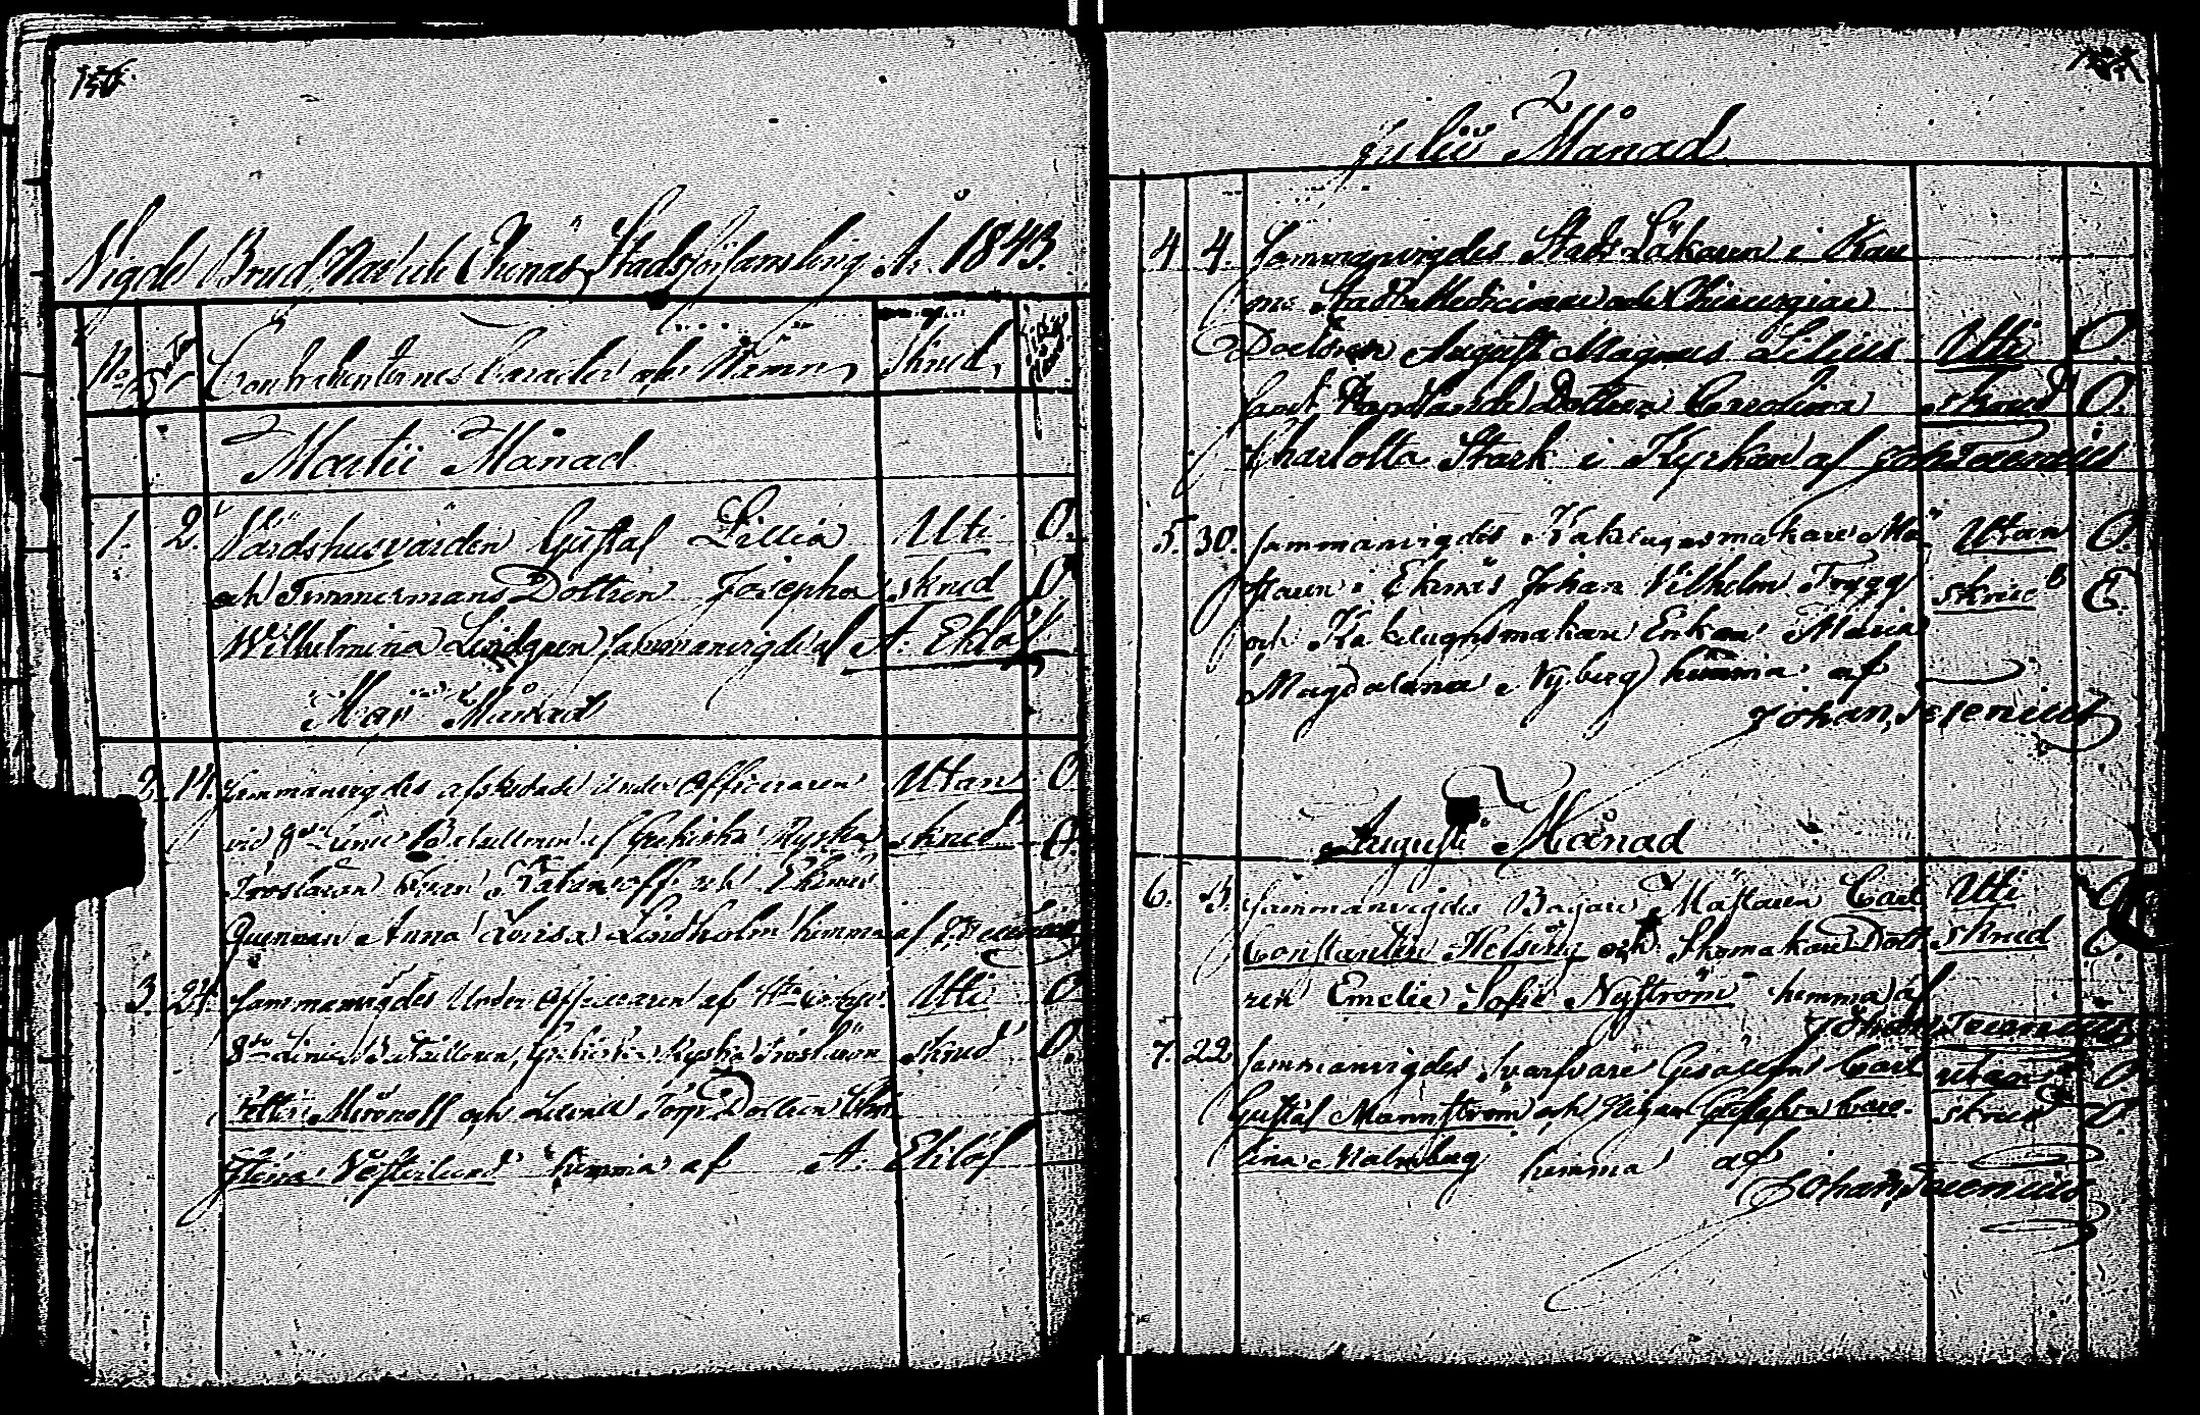 156.
Vigde Brud Par uti Ekenäs Stadsförsamling År 1843.
No Contrahenternes Caracter och Namn, Skrud,
Martii Månad
1. 2. Värdshusvärden Gustaf Lillia Uti O.
och Timmermans Dottren Josepha skrud O
Wilhelmina Lindgren sammanvigde af A. Eklöf
Maji Månad
2. 14. Sammanvigdes afskedade Under Officeraren Utan O
vid Finska Bataillonen af Grekiska Ryska skrud O.
Trosläran och Ekenäs
Quinnan Anna Lovisa Lindholm hemma af
3. 24. Sammanvigdes Under Officeraren af Uti O
Linie Bataillonen, Grekiska Ryska trosläran skrud O.
Petter Mironoff och Dottren Chri
stina Vesterlund hemma af A. Eklöf
Julii Månad
4 4. Sammanvigdes Stads Läkaren i Eke
näs Stad Medicinae och Chirurgiae
Doctoren August Magnus Lilius Uti O.
samt Handlande Dottren Carolina skrud O.
Charlotta Stark i Kyrkan af Joh Terenius
5. 30. Sammanvigdes Kakelugnsmakare Mä Utan O.
staren i Ekenäs Johan Vilhelm Trygg skrud O.
och Kakelugnsmakare Enkan Maria
Magdalena Nyberg hemma af
Johan Terenius
Augusti Månad
6. 3. Sammanvigdes Bagare Mästaren Carl Uti O
Constantin Helsing och Skomakare Dott skrud O.
ren Emelie Sofie Nyström hemma af
Johan Terenius
7. 22. Sammanvigdes Svarfvare Gesällen Carl utan O
Gustaf Mannström och Pigan Gustafva Caro skrud O.
lina Malmberg hemma af
Johan Terenius